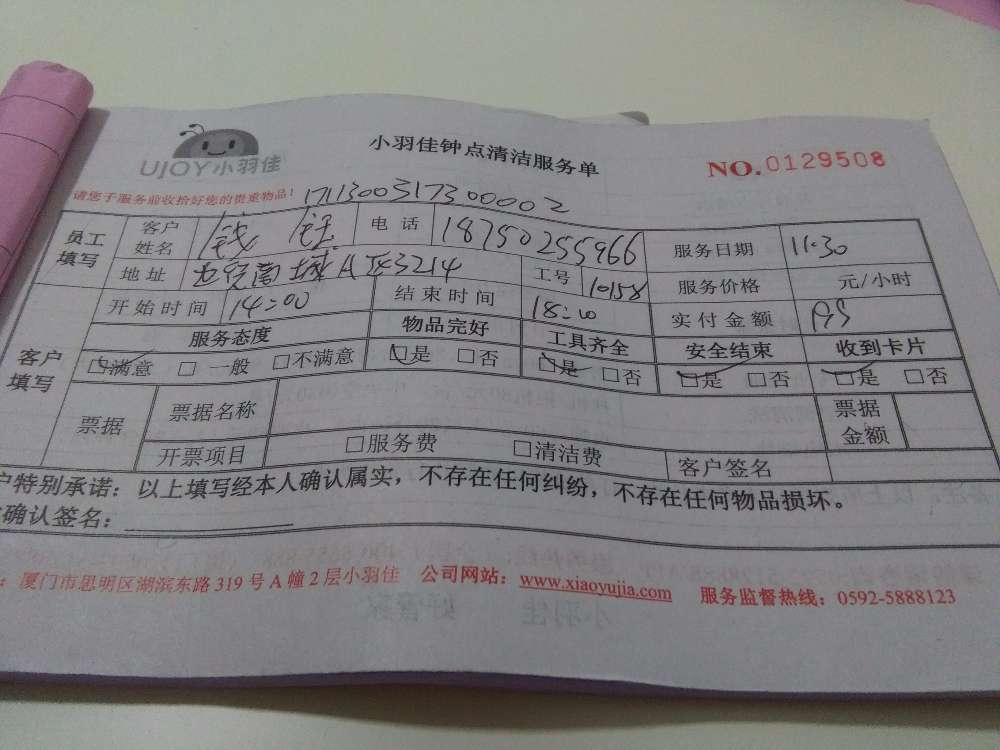 UJOY小羽佳
小羽佳钟点清洁服务单
NO.0129508
请您于服务前收拾好您的贵重物品！
1711300317300002
员工填写 客户姓名 钱 电话 18750255966 服务日期 11.30
地址 城A区3214 工号 10158 服务价格 元/小时
客户填写 开始时间 14:00 结束时间 18:00 实付金额
服务态度 物品完好 工具齐全 安全结束 收到卡片
□满意 □一般 □不满意 □是 □否 □是 □否 □是 □否 □是 □否
票据 票据名称 票据金额
开票项目 □服务费 □清洁费 客户签名
户特别承诺：以上填写经本人确认属实，不存在任何纠纷，不存在任何物品损坏。
确认签名：
：厦门市思明区湖滨东路319号A幢2层小羽佳 公司网站：www.xiaoyujia.com 服务监督热线：0592-5888123